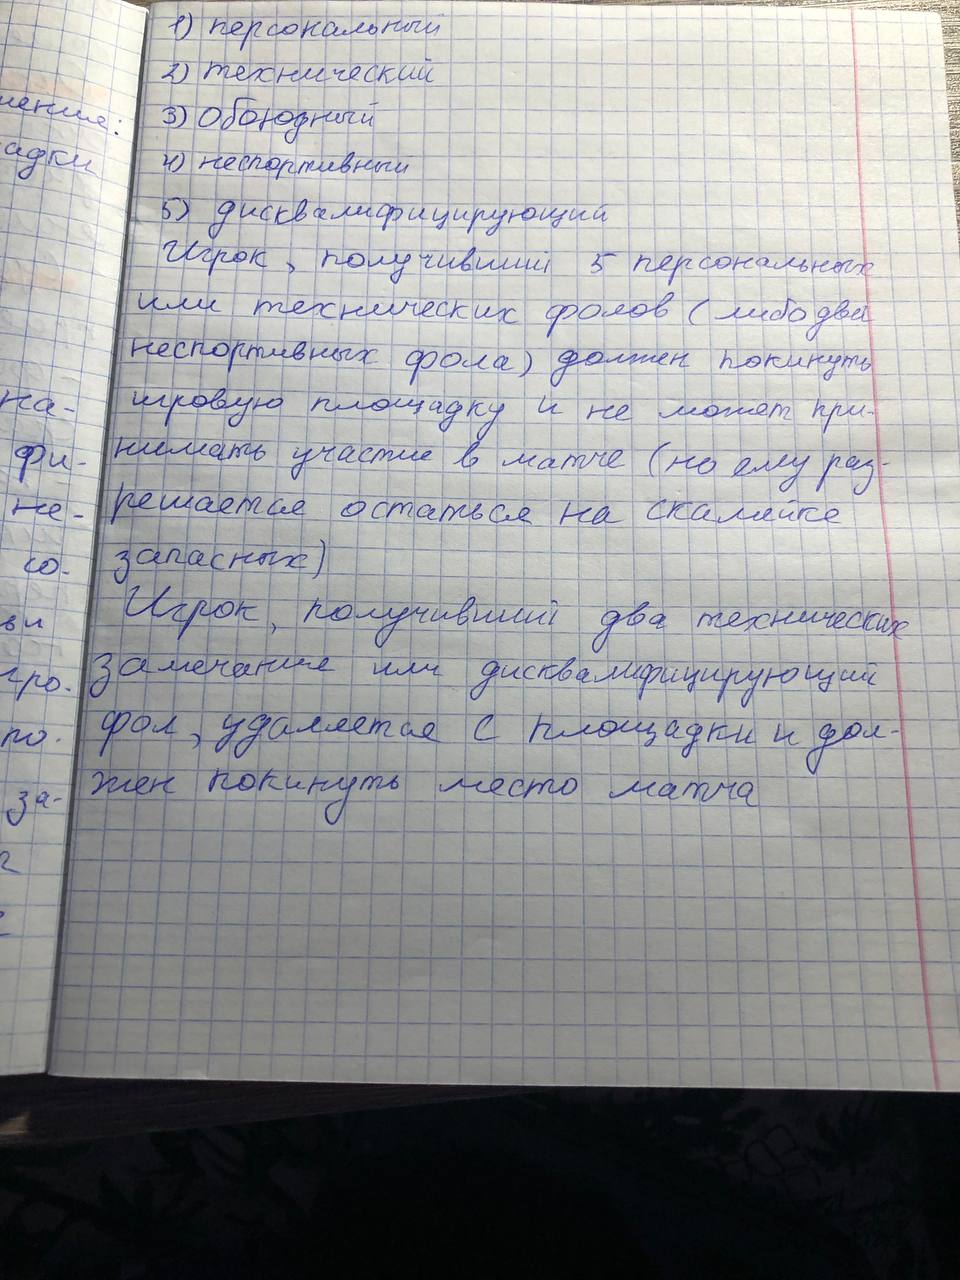 1) персональный
2) технический
3) Обоюдный
4) неспортивный
5) дисквалифицирующий
Игрок, получивший 5 персональных
или технических фолов (либо два
неспортивных фола) должен покинуть
игровую площадку и не может при-
нимать участие в матче (но ему раз-
решается остаться на скамейке
запасных)
Игрок, получивший два технических
замечание или дисквалифицирующий
фол, удаляется с площадки и дол-
жен покинуть место матча
ления:
адки
на-
фи-
не-
со-
ви
гро-
по-
за-